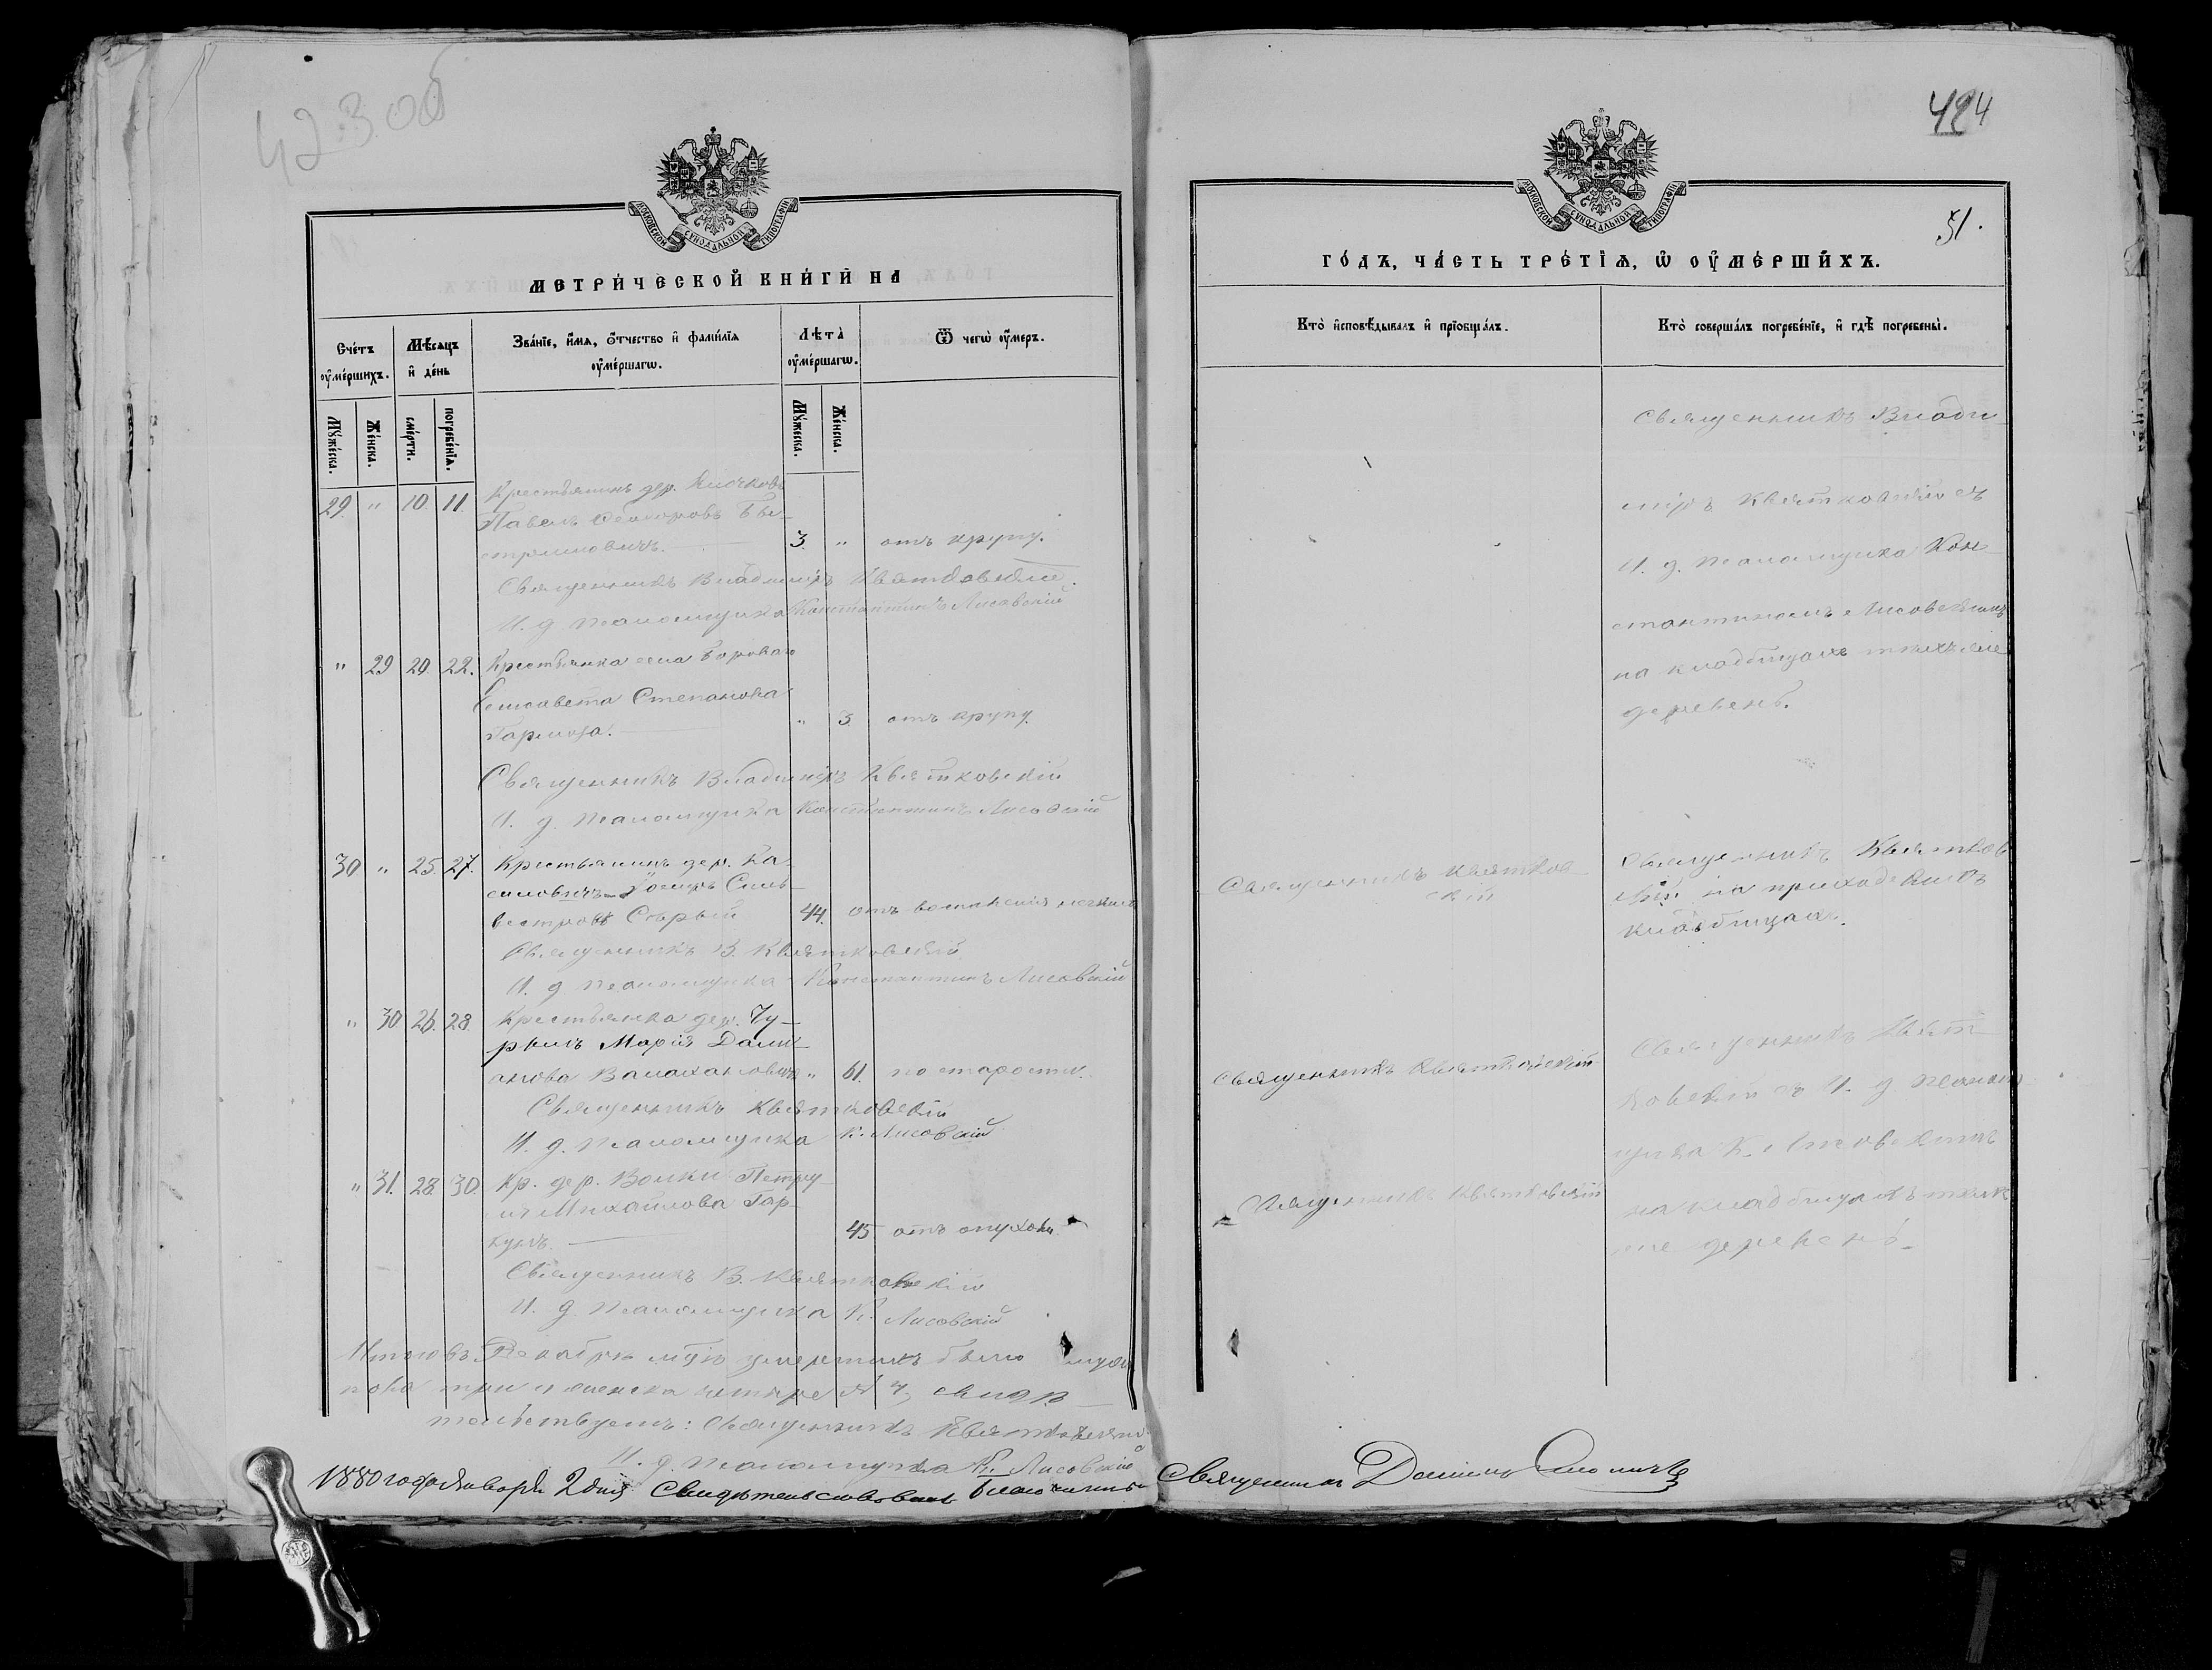 423 об
МОСКОВСКОЙ СѴНОДАЛЬНОЙ ТИПОГРАФІИ
МЕТРИ́ЧЕСКОЙ КНИ́ГИ НА
Сче́тъ ᲂу҆ме́ршихъ.
Мꙋ́жеска.
Же́нска.
Мѣ́сяцъ и҆ де́нь
сме́рти.
погребе́нїѧ.
Зва́нїе, и҆́мѧ, ѻ҆́тчество и҆ фами́лїѧ ᲂу҆ме́ршагѡ.
Лѣ́та ᲂу҆ме́ршагѡ.
Мꙋ́жеска.
Же́нска.
Ѿ чегѡ̀ ᲂу҆́меръ.
29. " 10. 11. Крестьянинъ дер.
Павелъ
3. " отъ крупу.
Священникъ Владиміръ Квятковскій.
И. д. псаломщика Константинъ Лисовскій
" 29 20. 22. Крестьянка села Бороваго
Елисавета Степанова
" 3 отъ крупу.
Священникъ Владиміръ Квятковскій
И. д. псаломщика Константинъ Лисовскій
30 " 25. 27. Крестьянинъ дер. Ва-
силовичъ Іосифъ Силь-
вестровъ Сѣрый 44. отъ воспаленія легкихъ
Священникъ В. Квятковскій
И. д. псаломщика Константинъ Лисовскій
" 30 26. 28. Крестьянка дер. Чу-
Марія Дами-
анова " 61. по старости.
Священникъ Квятковскій
И. д. псаломщика К. Лисовскій
" 31. 28. 30. Кр. дер. Волки
Михайлова Гар-
45 отъ опухоли
Священникъ В. Квятковскій
И. д. псаломщика К. Лисовскій
Итого въ Декабрѣ м-цѣ умершихъ было муж.
пола три и женска четыре № 7, свидѣ-
тельствуемъ: Священникъ Квятковскій
И. д. псаломщика К. Лисовскій
1880 года Января 2 дня Свидѣтельствовалъ Благочинный Священникъ
424
31.
МОСКОВСКОЙ СѴНОДАЛЬНОЙ ТИПОГРАФІИ
ГО́ДЪ, ЧА́СТЬ ТРЕ́ТЇѦ, Ѡ҆ ОУ҆МЕ́РШИХЪ.
Кто̀ и҆сповѣ́дывалъ и҆ прїобща́лъ.
Кто̀ соверша́лъ погребе́нїе, и҆ гдѣ̀ погребены̀.
Священникъ Влади-
міръ Квятковскій съ
И. д. псаломщика Кон-
стантиномъ Лисовскимъ
на кладбищахъ тѣхъ же
деревень.
Священникъ Квятков-
скій
Священникъ Квятков-
скій на приходскомъ
кладбищѣ.
Священникъ Квятковскій
Священникъ Квят-
ковскій съ И. д. псалом-
щика К. Лисовскимъ
Священникъ Квятковскій
на кладбищахъ тѣхъ
же деревень.